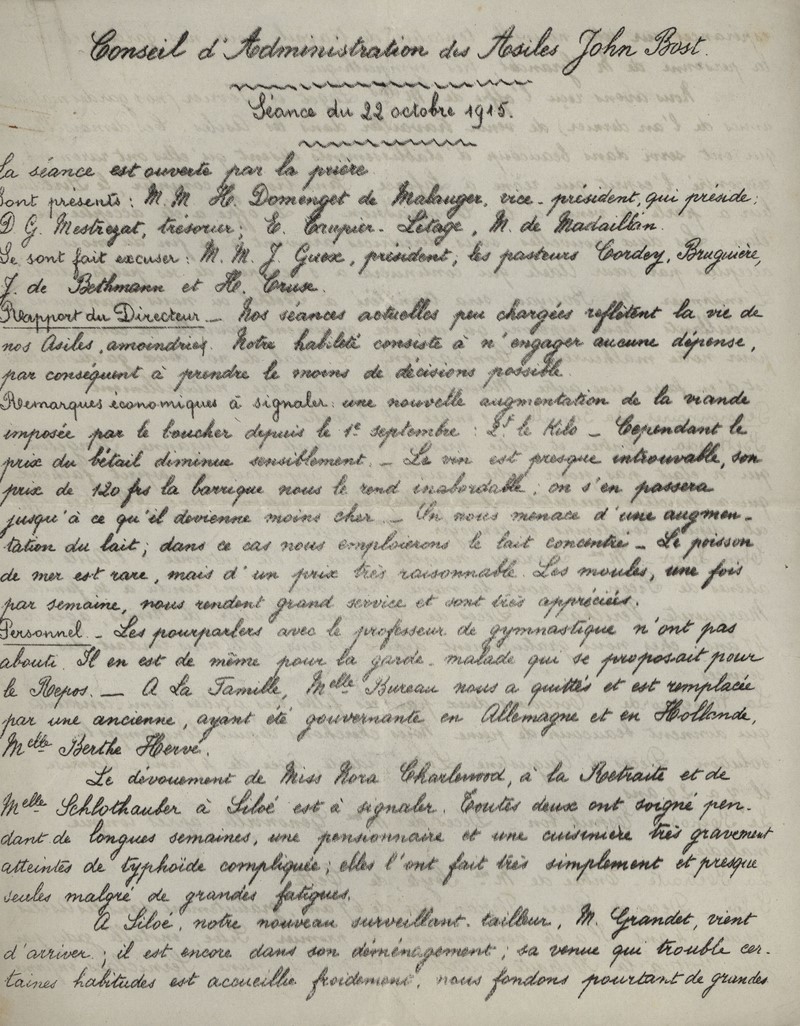 Conseil d'Administration des Asiles John Bost.
Séance du 22 octobre 1915.
La séance est ouverte par la prière
Sont présents : M.M H. Domenget de Malauger, vice-président, qui préside ;
D G. Mestrezat, trésorier ; E. Caupier-Létage, M. de Madaillan.
Se sont fait excuser : M.M. J. Guex, président, les pasteurs Cordey, Bruguière,
J. de Bethmann et H. Cruse.
Rapport du Directeur _ Nos séances actuelles peu chargées reflètent la vie de
nos Asiles, amoindries. Notre habileté consiste à n'engager aucune dépense,
par conséquent à prendre le moins de décisions possible
Remarques économiques à signaler : une nouvelle augmentation de la viande
imposée par le boucher depuis le 1e septembre : 2f le Kilo _ Cependant le
prix du bétail diminue sensiblement. _ Le vin est presque introuvable, son
prix de 120 frs la barrique nous le rend inabordable ; on s'en passera
jusqu'à ce qu'il devienne moins cher _ On nous menace d'une augmen-
tation du lait ; dans ce cas nous emploierons le lait concentré _ Le poisson
de mer est rare, mais d'un prix très raisonnable. Les moules, une fois
par semaine, nous rendent grand service et sont très appréciées.
Personnel _ Les pourparlers avec le professeur de gymnastique n'ont pas
abouti. Il en est de même pour la garde-malade qui se proposait pour
le Repos. _ A La Famille, Melle Bureau nous a quittés et est remplacée
par une ancienne, ayant été gouvernante en Allemagne et en Hollande,
Melle Berthe Hervé.
Le dévouement de Miss Nora Charlewood, à la Retraite et de
Melle Schlothauber à Siloé est à signaler. Toutes deux ont soigné pen-
dant de longues semaines, une pensionnaire et une cuisinière très gravement
atteintes de typhoïde compliquée ; elles l'ont fait très simplement et presque
seules malgré de grandes fatigues.
A Siloé, notre nouveau surveillant-tailleur, M. Grandet, vient
d'arriver ; il est encore dans son déménagement ; sa venue qui trouble cer-
taines habitudes est accueillie froidement, nous fondons pourtant de grandes